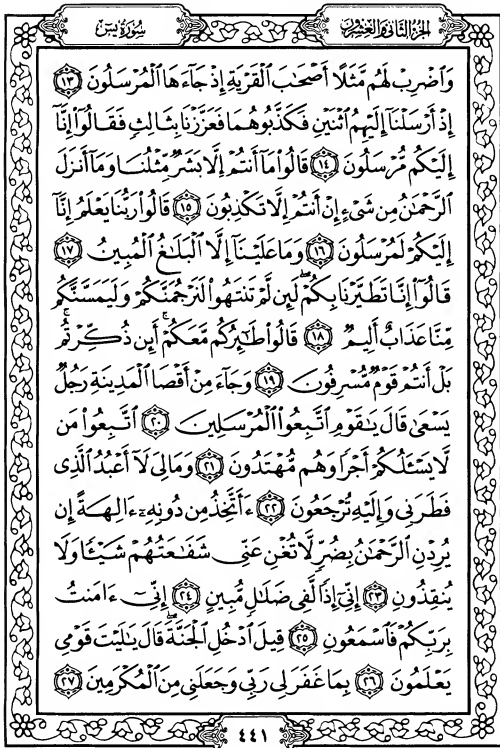 الجزء الثانى والعشرون
سورة يس
وَٱضْرِبْ لَهُم مَّثَلًا أَصْحَٰبَ ٱلْقَرْيَةِ إِذْ جَآءَهَا ٱلْمُرْسَلُونَ ١٣
إِذْ أَرْسَلْنَآ إِلَيْهِمُ ٱثْنَيْنِ فَكَذَّبُوهُمَا فَعَزَّزْنَا بِثَالِثٍ فَقَالُوٓا۟ إِنَّآ
إِلَيْكُم مُّرْسَلُونَ ١٤ قَالُوا۟ مَآ أَنتُمْ إِلَّا بَشَرٌ مِّثْلُنَا وَمَآ أَنزَلَ
ٱلرَّحْمَٰنُ مِن شَىْءٍ إِنْ أَنتُمْ إِلَّا تَكْذِبُونَ ١٥ قَالُوا۟ رَبُّنَا يَعْلَمُ إِنَّآ
إِلَيْكُمْ لَمُرْسَلُونَ ١٦ وَمَا عَلَيْنَآ إِلَّا ٱلْبَلَٰغُ ٱلْمُبِينُ ١٧
قَالُوٓا۟ إِنَّا تَطَيَّرْنَا بِكُمْ ۖ لَئِن لَّمْ تَنتَهُوا۟ لَنَرْجُمَنَّكُمْ وَلَيَمَسَّنَّكُم
مِّنَّا عَذَابٌ أَلِيمٌ ١٨ قَالُوا۟ طَٰٓئِرُكُم مَّعَكُمْ ۚ أَئِن ذُكِّرْتُم ۚ
بَلْ أَنتُمْ قَوْمٌ مُّسْرِفُونَ ١٩ وَجَآءَ مِنْ أَقْصَا ٱلْمَدِينَةِ رَجُلٌ
يَسْعَىٰ قَالَ يَٰقَوْمِ ٱتَّبِعُوا۟ ٱلْمُرْسَلِينَ ٢٠ ٱتَّبِعُوا۟ مَن
لَّا يَسْـَٔلُكُمْ أَجْرًا وَهُم مُّهْتَدُونَ ٢١ وَمَا لِىَ لَآ أَعْبُدُ ٱلَّذِى
فَطَرَنِى وَإِلَيْهِ تُرْجَعُونَ ٢٢ ءَأَتَّخِذُ مِن دُونِهِۦٓ ءَالِهَةً إِن
يُرِدْنِ ٱلرَّحْمَٰنُ بِضُرٍّ لَّا تُغْنِ عَنِّى شَفَٰعَتُهُمْ شَيْـًٔا وَلَا
يُنقِذُونِ ٢٣ إِنِّىٓ إِذًا لَّفِى ضَلَٰلٍ مُّبِينٍ ٢٤ إِنِّىٓ ءَامَنتُ
بِرَبِّكُمْ فَٱسْمَعُونِ ٢٥ قِيلَ ٱدْخُلِ ٱلْجَنَّةَ ۖ قَالَ يَٰلَيْتَ قَوْمِى
يَعْلَمُونَ ٢٦ بِمَا غَفَرَ لِى رَبِّى وَجَعَلَنِى مِنَ ٱلْمُكْرَمِينَ ٢٧
٤٤١